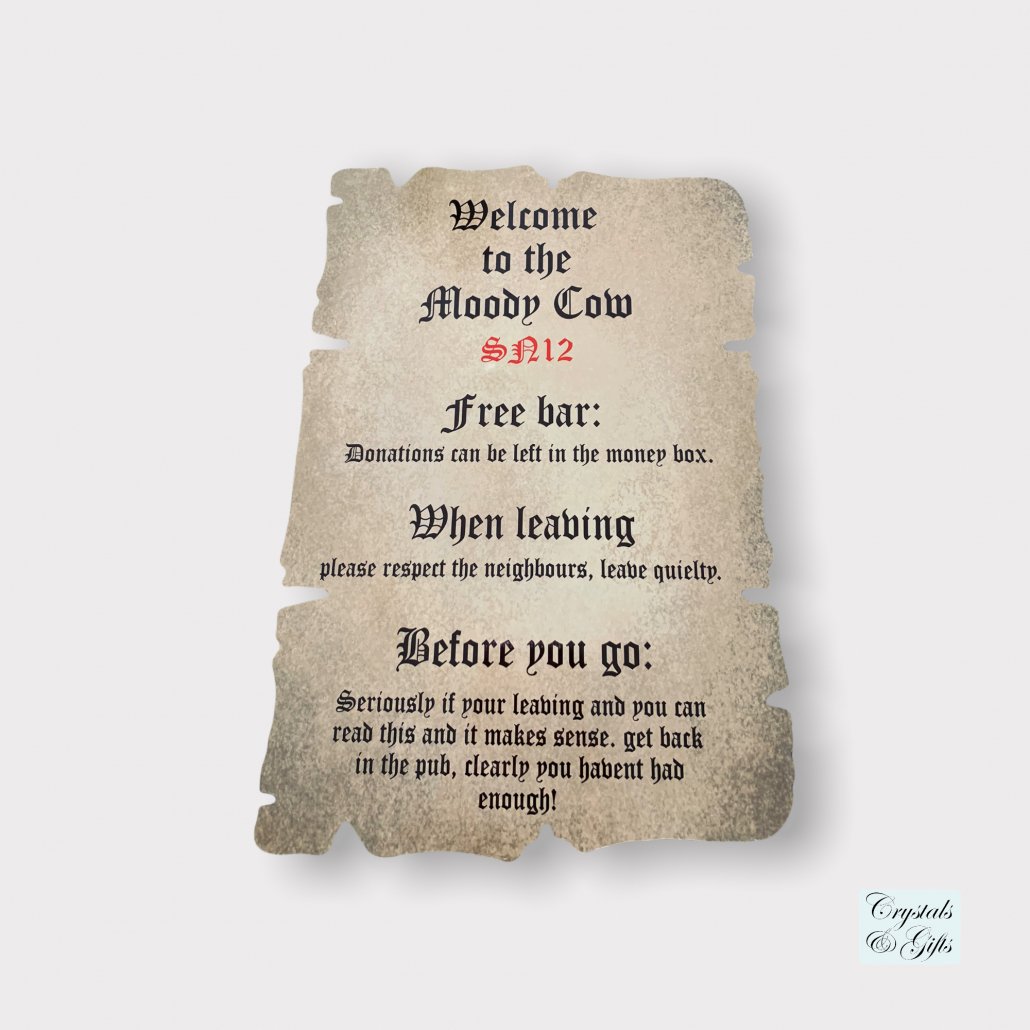 Welcome
to the
Moody Cow
SN12
Free bar:
Donations can be left in the money box.
When leaving
please respect the neighbours, leave quielty.
Before you go:
Seriously if your leaving and you can
read this and it makes sense. get back
in the pub, clearly you havent had
enough!
Crystals
& Gifts